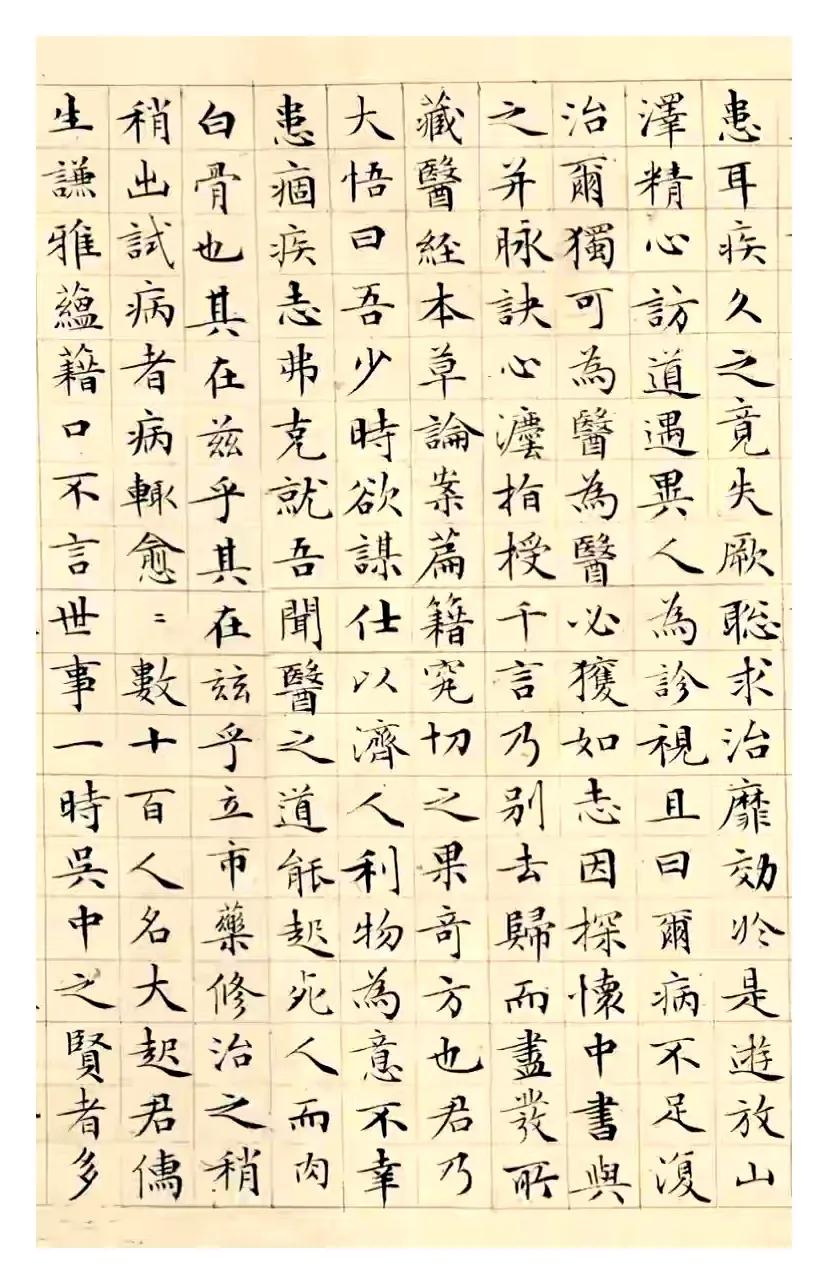 患耳疾久之竟失厥聡求治靡効於是遊放山
澤精心訪道遇異人為診視且曰爾病不足復
治爾獨可為醫為醫必獲如志因探懷中書與
之并脉訣心灋指授千言乃别去歸而盡發所
藏醫經本草論案篇籍究切之果奇方也君乃
大悟曰吾少時欲謀仕以濟人利物為意不幸
患痼疾志弗克就吾聞醫之道能起死人而肉
白骨也其在兹乎其在兹乎立市藥修治之稍
稍出試病者病輙愈〻數十百人名大起君儁
生謙雅蘊籍口不言世事一時吳中之賢者多